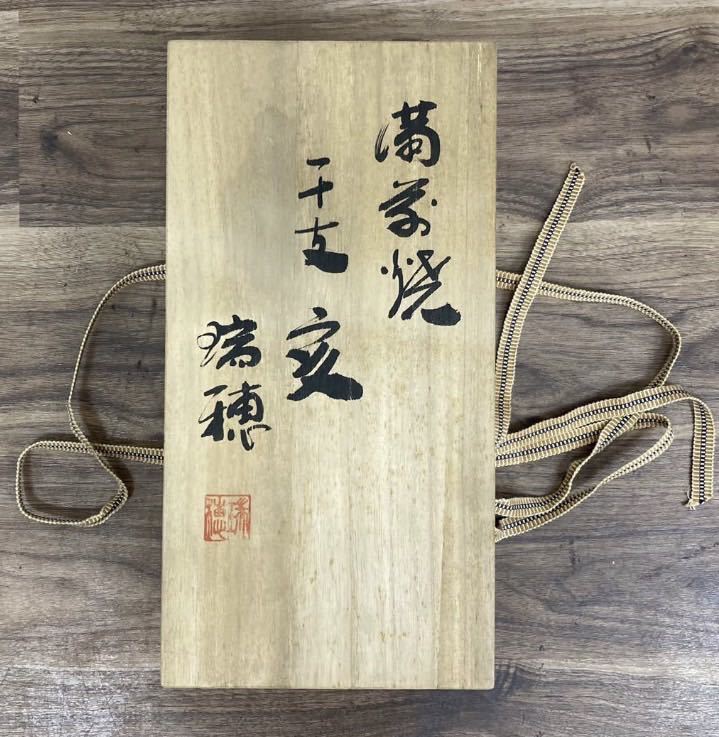 備前焼
干支
亥
瑞穂
瑞穂